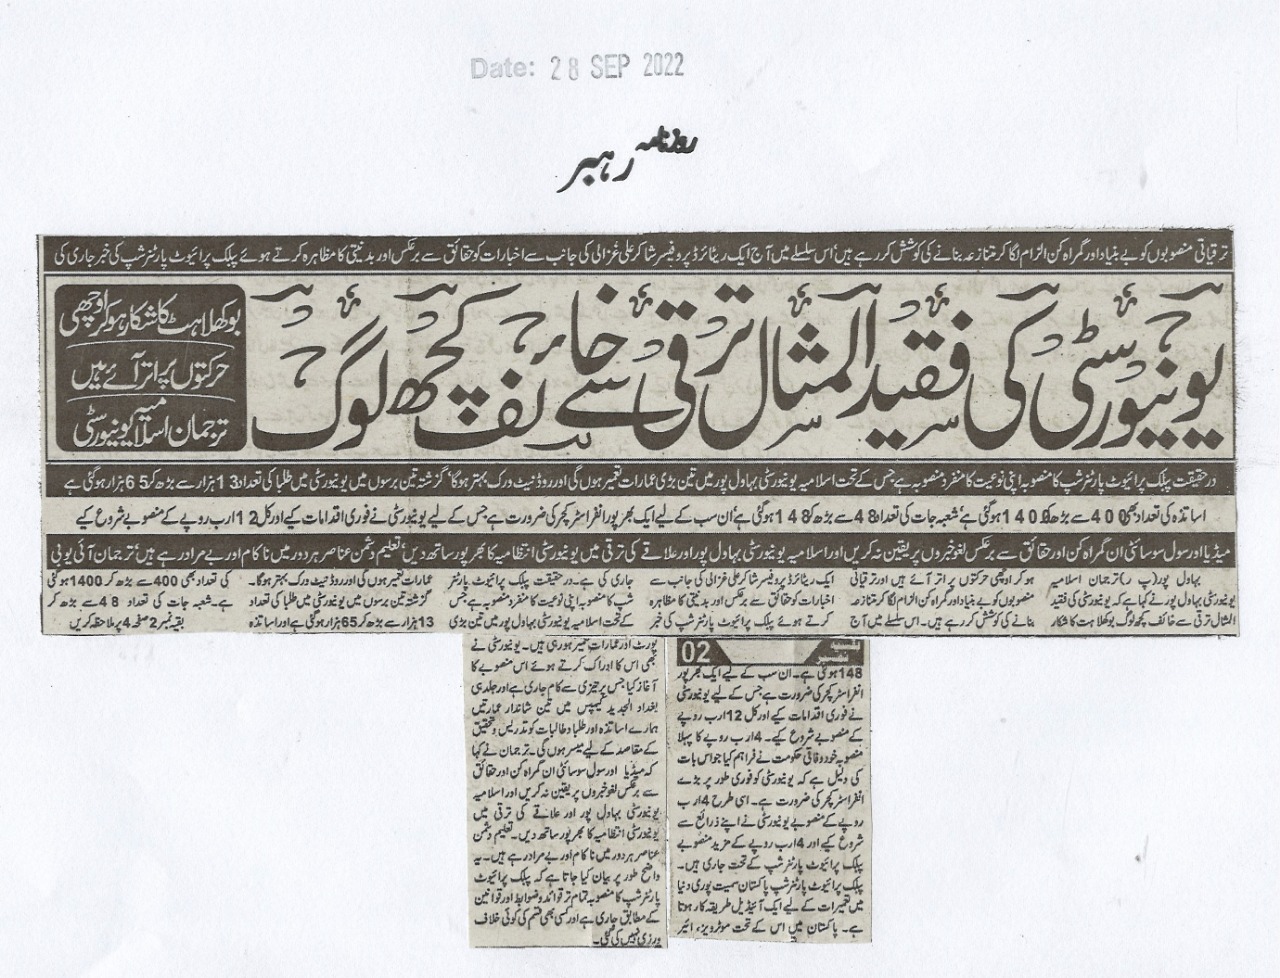 Date: 28 SEP 2022
روزنامہ رہبر
ترقیاتی منصوبوں کو بے بنیاد اور گمراہ کن الزام لگا کر متنازعہ بنانے کی کوشش کر رہے ہیں، اس سلسلے میں آج ایک ریٹائرڈ پروفیسر شاکر علی غزالی کی جانب سے اخبارات کو حقائق سے برعکس اور بدنیتی کا مظاہرہ کرتے ہوئے پبلک پرائیوٹ پارٹنرشپ کی خبر جاری کی
یونیورسٹی کی فقید المثال ترقی سے خائف کچھ لوگ
بوکھلاہٹ کا شکار ہو کر اوچھی
حرکتوں پر اتر آئے ہیں
ترجمان اسلامیہ یونیورسٹی
درحقیقت پبلک پرائیوٹ پارٹنرشپ کا منصوبہ اپنی نوعیت کا منفرد منصوبہ ہے جس کے تحت اسلامیہ یونیورسٹی بہاول پور میں تین بڑی عمارات تعمیر ہوں گی اور روڈ نیٹ ورک بہتر ہوگا، گزشتہ تین برسوں میں یونیورسٹی میں طلبا کی تعداد 13 ہزار سے بڑھ کر 65 ہزار ہو گئی ہے
اساتذہ کی تعداد بھی 400 سے بڑھ کر 1400 ہو گئی ہے، شعبہ جات کی تعداد 48 سے بڑھ کر 148 ہو گئی ہے، ان سب کے لیے ایک بھرپور انفراسٹرکچر کی ضرورت ہے جس کے لیے یونیورسٹی نے فوری اقدامات کیے اور کل 12 ارب روپے کے منصوبے شروع کیے
میڈیا اور سول سوسائٹی ان گمراہ کن اور حقائق سے برعکس لغو خبروں پر یقین نہ کریں اور اسلامیہ یونیورسٹی بہاول پور اور علاقے کی ترقی میں یونیورسٹی انتظامیہ کا بھرپور ساتھ دیں، تعلیم دشمن عناصر ہر دور میں ناکام اور بے مراد رہے ہیں، ترجمان آئی یو بی
بہاول پور (پ ر) ترجمان اسلامیہ
یونیورسٹی بہاول پور نے کہا ہے کہ یونیورسٹی کی فقید
المثال ترقی سے خائف کچھ لوگ بوکھلاہٹ کا شکار
ہو کر اوچھی حرکتوں پر اتر آئے ہیں اور ترقیاتی
منصوبوں کو بے بنیاد اور گمراہ کن الزام لگا کر متنازعہ
بنانے کی کوشش کر رہے ہیں۔ اس سلسلے میں آج
ایک ریٹائرڈ پروفیسر شاکر علی غزالی کی جانب سے
اخبارات کو حقائق سے برعکس اور بدنیتی کا مظاہرہ
کرتے ہوئے پبلک پرائیوٹ پارٹنرشپ کی خبر
جاری کی ہے۔ درحقیقت پبلک پرائیوٹ پارٹنر
شپ کا منصوبہ اپنی نوعیت کا منفرد منصوبہ ہے جس
کے تحت اسلامیہ یونیورسٹی بہاول پور میں تین بڑی
عمارات تعمیر ہوں گی اور روڈ نیٹ ورک بہتر ہوگا۔
گزشتہ تین برسوں میں یونیورسٹی میں طلبا کی تعداد
13 ہزار سے بڑھ کر 65 ہزار ہو گئی ہے اور اساتذہ
کی تعداد بھی 400 سے بڑھ کر 1400 ہو گئی
ہے۔ شعبہ جات کی تعداد 48 سے بڑھ کر
بقیہ نمبر 2 صفحہ 4 پر ملاحظہ کریں
بقیہ نمبر 02
148 ہو گئی ہے۔ ان سب کے لیے ایک بھرپور
انفراسٹرکچر کی ضرورت ہے جس کے لیے یونیورسٹی
نے فوری اقدامات کیے اور کل 12 ارب روپے
کے منصوبے شروع کیے۔ 4 ارب روپے کا پہلا
منصوبہ خود وفاقی حکومت نے فراہم کیا جو اس بات
کی دلیل ہے کہ یونیورسٹی کو فوری طور پر بڑے
انفراسٹرکچر کی ضرورت ہے۔ اسی طرح 4 ارب
روپے کے منصوبے یونیورسٹی نے اپنے ذرائع سے
شروع کیے اور 4 ارب روپے کے مزید منصوبے
پبلک پرائیوٹ پارٹنرشپ کے تحت جاری ہیں۔
پبلک پرائیوٹ پارٹنرشپ پاکستان سمیت پوری دنیا
میں تعمیرات کے لیے ایک آئیڈیل طریقہ کار ہوتا
ہے۔ پاکستان میں اس کے تحت موٹرویز، ائیر
پورٹ اور عمارات تعمیر ہو رہی ہیں۔ یونیورسٹی نے
بھی اس کا ادراک کرتے ہوئے اس منصوبے کا
آغاز کیا جس پر تیزی سے کام جاری ہے اور جلد ہی
بغداد الجدید کیمپس میں تین شاندار عمارتیں
ہمارے اساتذہ اور طلبا و طالبات کو تدریس و تحقیق
کے مقاصد کے لیے میسر ہوں گی۔ ترجمان نے کہا
کہ میڈیا اور سول سوسائٹی ان گمراہ کن اور حقائق
سے برعکس لغو خبروں پر یقین نہ کریں اور اسلامیہ
یونیورسٹی بہاول پور اور علاقے کی ترقی میں
یونیورسٹی انتظامیہ کا بھرپور ساتھ دیں۔ تعلیم دشمن
عناصر ہر دور میں ناکام اور بے مراد رہے ہیں۔ یہ
واضح طور پر بیان کیا جاتا ہے کہ پبلک پرائیوٹ
پارٹنرشپ کا منصوبہ تمام تر قواعد و ضوابط اور قوانین
کے مطابق جاری ہے اور کسی بھی قسم کی کوئی خلاف
ورزی نہیں کی گئی۔